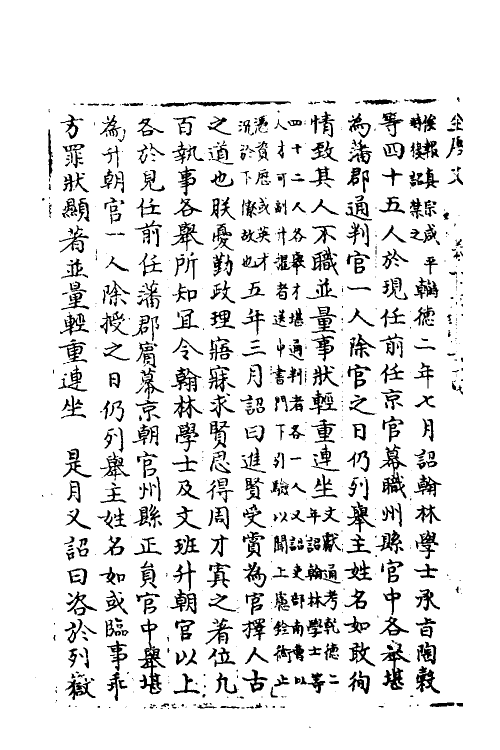 候報真宗咸平
時復詔禁之
乾德二年七月詔翰林學士承旨陶穀
等四十五人於現任前任京官幕職州縣官中各舉堪
為藩郡通判官一人除官之日仍列舉主姓名如敢徇
情致其人不職並量事狀輕重連坐
文獻通考乾德二
年詔翰林學士等
四十二人各舉才堪通判者各一人又詔吏部南曹以
人才可副升擢者送中書門下引驗以聞上慮銓衡止
憑資歷或英才
沉於下僚故也
五年三月詔曰進賢受賞為官擇人古
之道也朕憂勤政理寤寐求賢思得周才寘之著位九
百執事各舉所知宜令翰林學士及文班升朝官以上
各於見任前任藩郡賓幕京朝官州縣正員官中舉堪
為升朝官一人除授之日仍列舉主姓名如或臨事乖
方罪狀顯著並量輕重連坐 是月又詔曰咨於列嶽